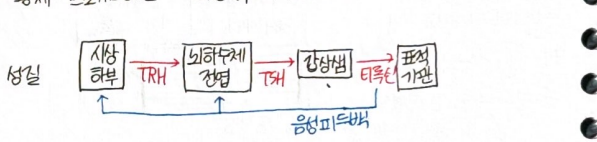 성질
시상
하부
TRH
뇌하수체
전엽
TSH
갑상샘
티록신
표적
기관
음성피드백